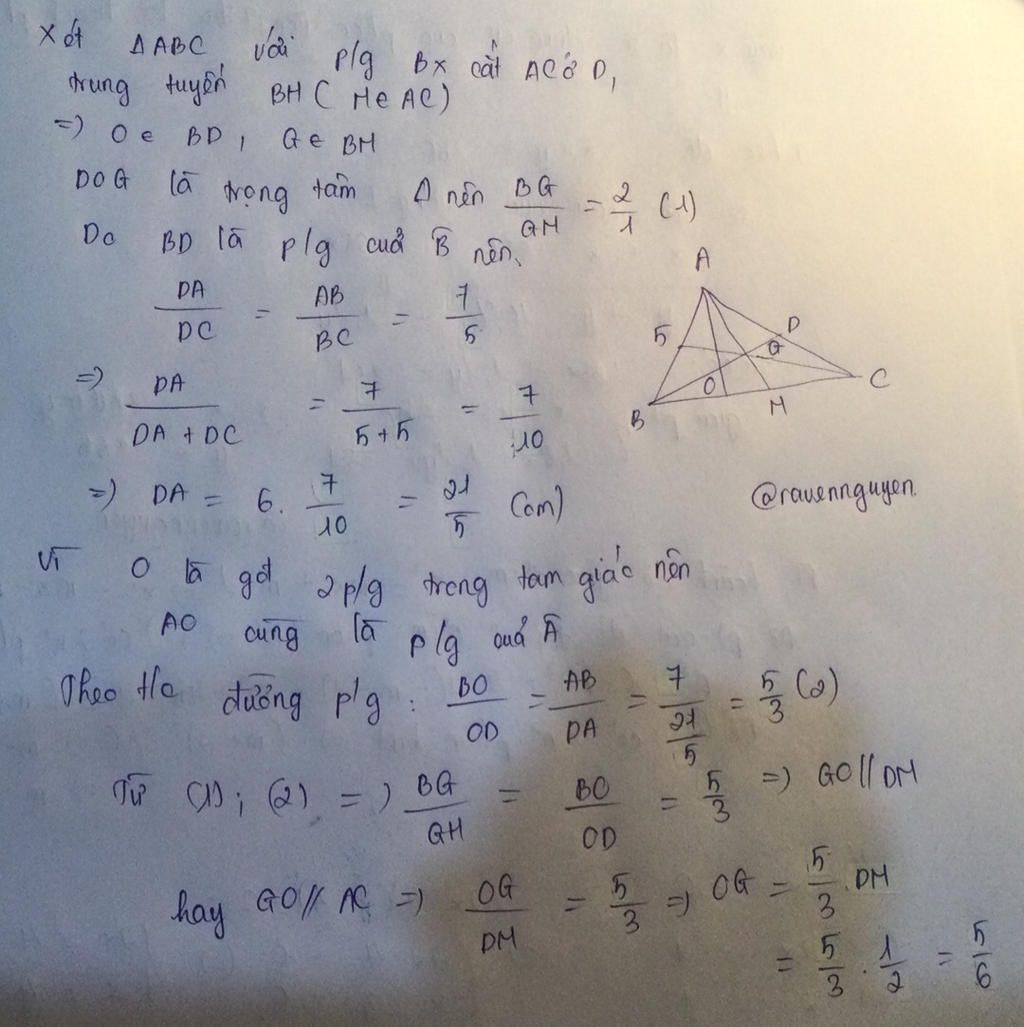 Xét ΔABC với p/g Bx cắt AC ở D,
trung tuyến BH ( H ∈ AC)
=) O ∈ BD, G ∈ BH
DOG là trọng tâm Δ nên BG/GH = 2/1 (1)
Do BD là p/g cuả B̂ nên.
DA/DC = AB/BC = 7/5
=) DA/(DA + DC) = 7/(5+5) = 7/10
=) DA = 6. 7/10 = 21/5 (cm)
Vì O là gđ 2p/g trong tam giác nên
AO cũng là p/g cuả Â
Theo t/c đường p/g : BO/OD = AB/DA = 7/(21/5) = 5/3 (2)
Từ (1); (2) =) BG/GH = BO/OD = 5/3 =) GO // DM
hay GO // AC =) OG/DM = 5/3 =) OG = 5/3 . DM
= 5/3 . 1/2 = 5/6
A
5
D
G
O
B
M
C
@ravennguyen.